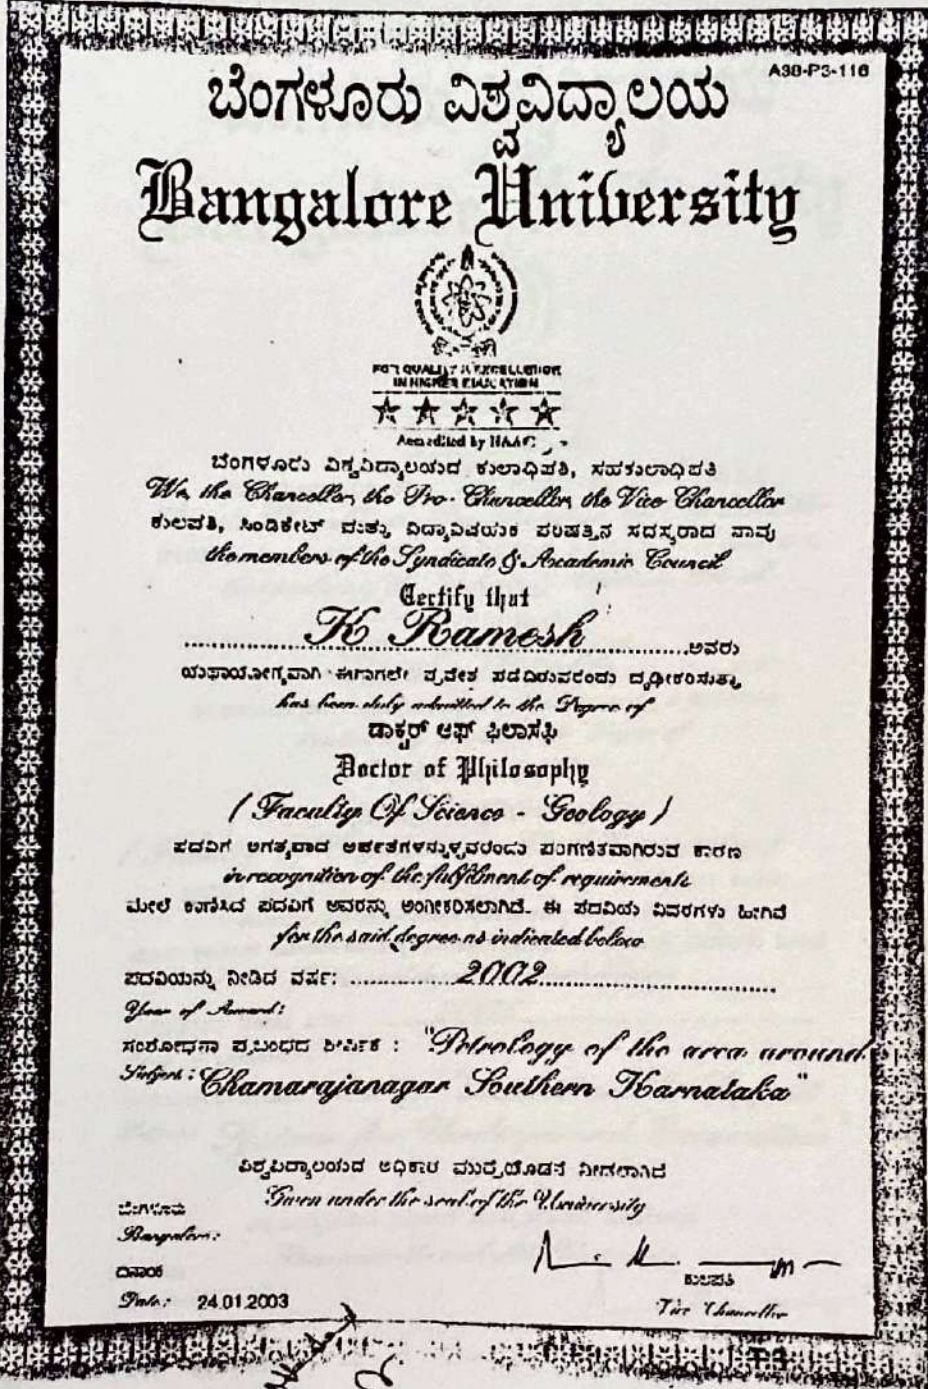 A38-P3-116
ಬೆಂಗಳೂರು ವಿಶ್ವವಿದ್ಯಾಲಯ
Bangalore University
IN HIGHER EDUCATION
Accredited by NAAC
ಬೆಂಗಳೂರು ವಿಶ್ವವಿದ್ಯಾಲಯದ ಕುಲಾಧಿಪತಿ, ಸಹಕುಲಾಧಿಪತಿ
We, the Chancellor, the Pro-Chancellor, the Vice Chancellor
ಕುಲಪತಿ, ಸಿಂಡಿಕೇಟ್ ಮತ್ತು ವಿದ್ಯಾವಿಷಯಕ ಪರಿಷತ್ತಿನ ಸದಸ್ಯರಾದ ನಾವು
the members of the Syndicate & Academic Council
Certify that
K Ramesh ಅವರು
ಯಥಾಯೋಗ್ಯವಾಗಿ ಈಗಾಗಲೇ ಪ್ರವೇಶ ಪಡೆದಿರುವರೆಂದು ದೃಢೀಕರಿಸುತ್ತಾ
has been duly admitted to the Degree of
ಡಾಕ್ಟರ್ ಆಫ್ ಫಿಲಾಸಫಿ
Doctor of Philosophy
( Faculty Of Science - Geology )
ಪದವಿಗೆ ಅಗತ್ಯವಾದ ಅರ್ಹತೆಗಳನ್ನುಳ್ಳವರೆಂದು ಪರಿಗಣಿತವಾಗಿರುವ ಕಾರಣ
in recognition of the fulfilment of requirements
ಮೇಲೆ ಕಾಣಿಸಿದ ಪದವಿಗೆ ಅವರನ್ನು ಅಂಗೀಕರಿಸಲಾಗಿದೆ. ಈ ಪದವಿಯ ವಿವರಗಳು ಹೀಗಿವೆ
for the said degree as indicated below
ಪದವಿಯನ್ನು ನೀಡಿದ ವರ್ಷ: 2002
Year of Award:
ಸಂಶೋಧನಾ ಪ್ರಬಂಧದ ಶೀರ್ಷಿಕೆ : "Petrology of the area around
Subject : Chamarajanagar Southern Karnataka"
ವಿಶ್ವವಿದ್ಯಾಲಯದ ಅಧಿಕಾರ ಮುದ್ರೆಯೊಡನೆ ನೀಡಲಾಗಿದೆ
Given under the seal of the University
ಬೆಂಗಳೂರು
Bangalore:
ದಿನಾಂಕ
Date: 24.01.2003
ಕುಲಪತಿ
Vice Chancellor